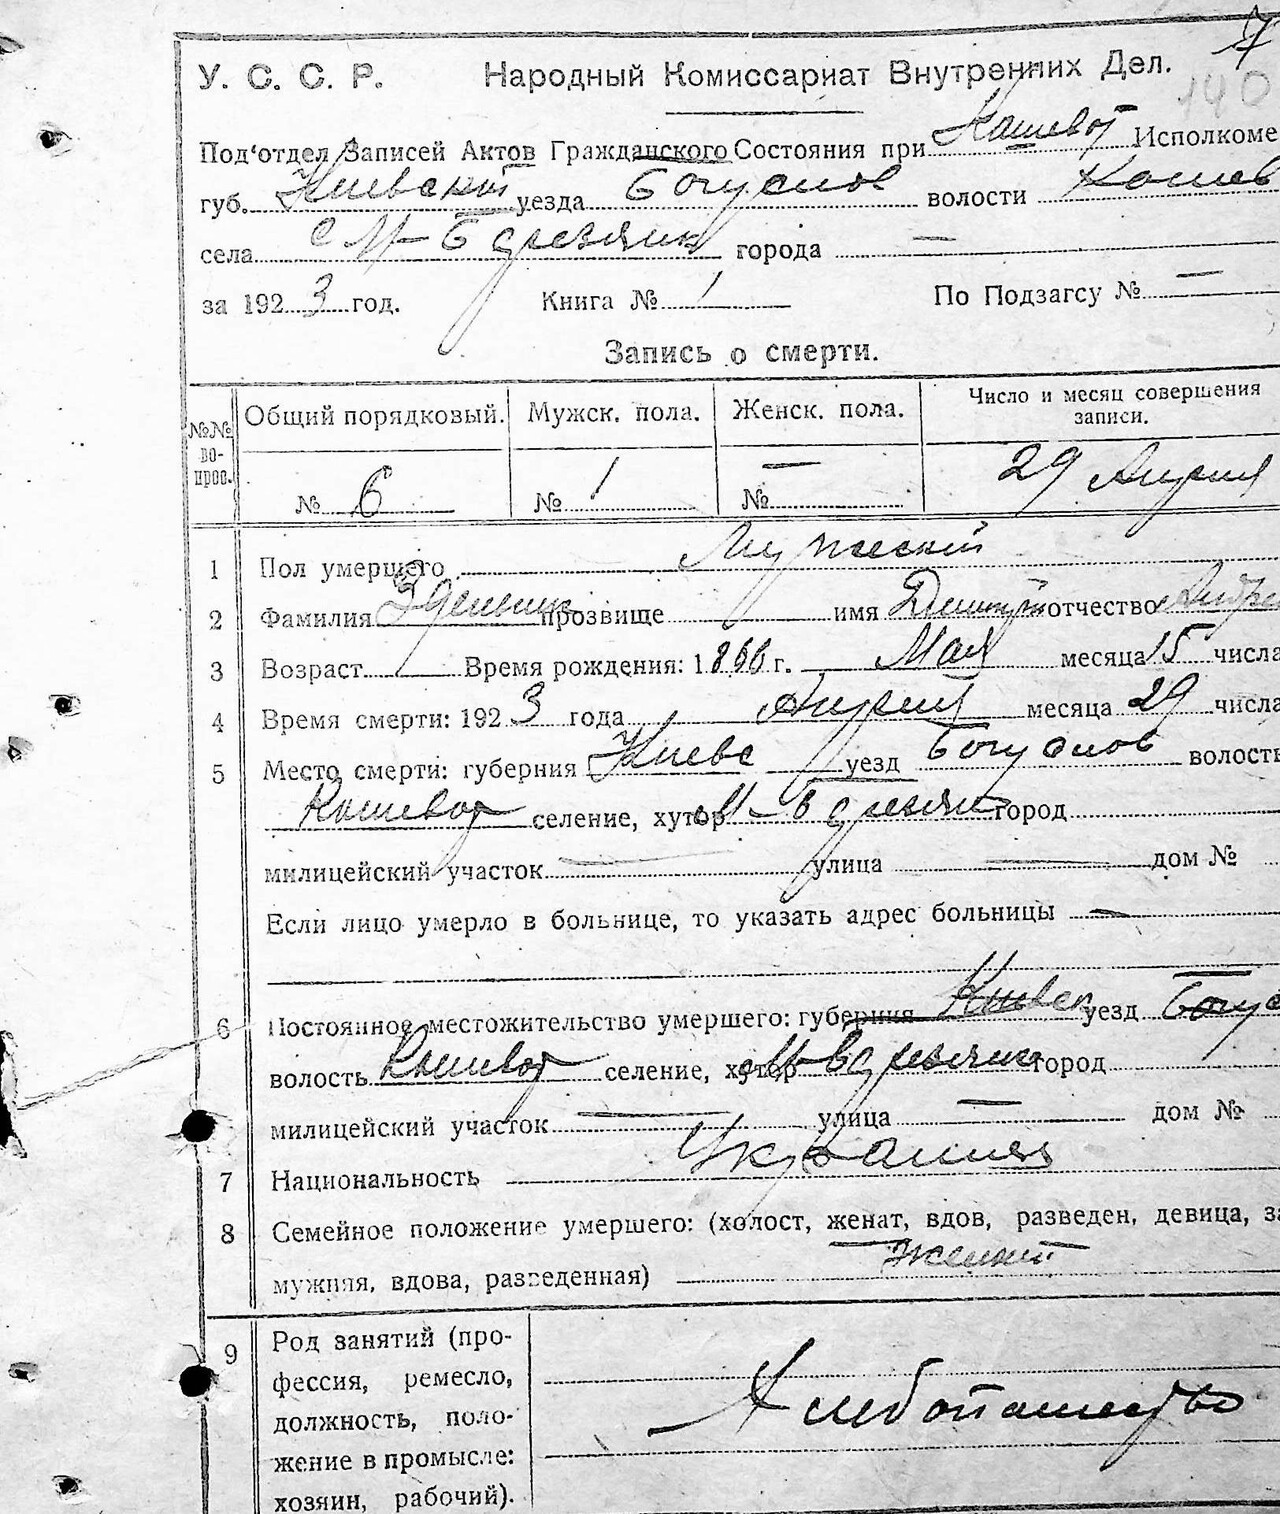 7
140
У. С. С. Р. Народный Комиссариат Внутренних Дел.
Под'отдел Записей Актов Гражданского Состояния при Кошеват Исполкоме
губ. Киевской уезда Богуслов волости Кошев
села города —
за 1923 год. Книга № 1 По Подзагсу № —
Запись о смерти.
№№ вопрос. Общий порядковый. Мужск. пола. Женск. пола. Число и месяц совершения записи.
№ 6 № 1 № — 29 Апреля
1 Пол умершего Мужеский
2 Фамилия прозвище имя отчество
3 Возраст Время рождения: 1866 г. Мая месяца 15 числа
4 Время смерти: 1923 года Апреля месяца 29 числа
5 Место смерти: губерния Киевс уезд Богуслов волость
Кошеват селение, хутор город
милицейский участок — улица — дом №
Если лицо умерло в больнице, то указать адрес больницы —
6 Постоянное местожительство умершего: губерния Киевск уезд Богус
волость Кошеват селение, хутор город
милицейский участок — улица — дом №
7 Национальность
8 Семейное положение умершего: (холост, женат, вдов, разведен, девица, за
мужняя, вдова, разведенная)
9 Род занятий (про-
фессия, ремесло,
должность, поло-
жение в промысле:
хозяин, рабочий).
Хлебопашество